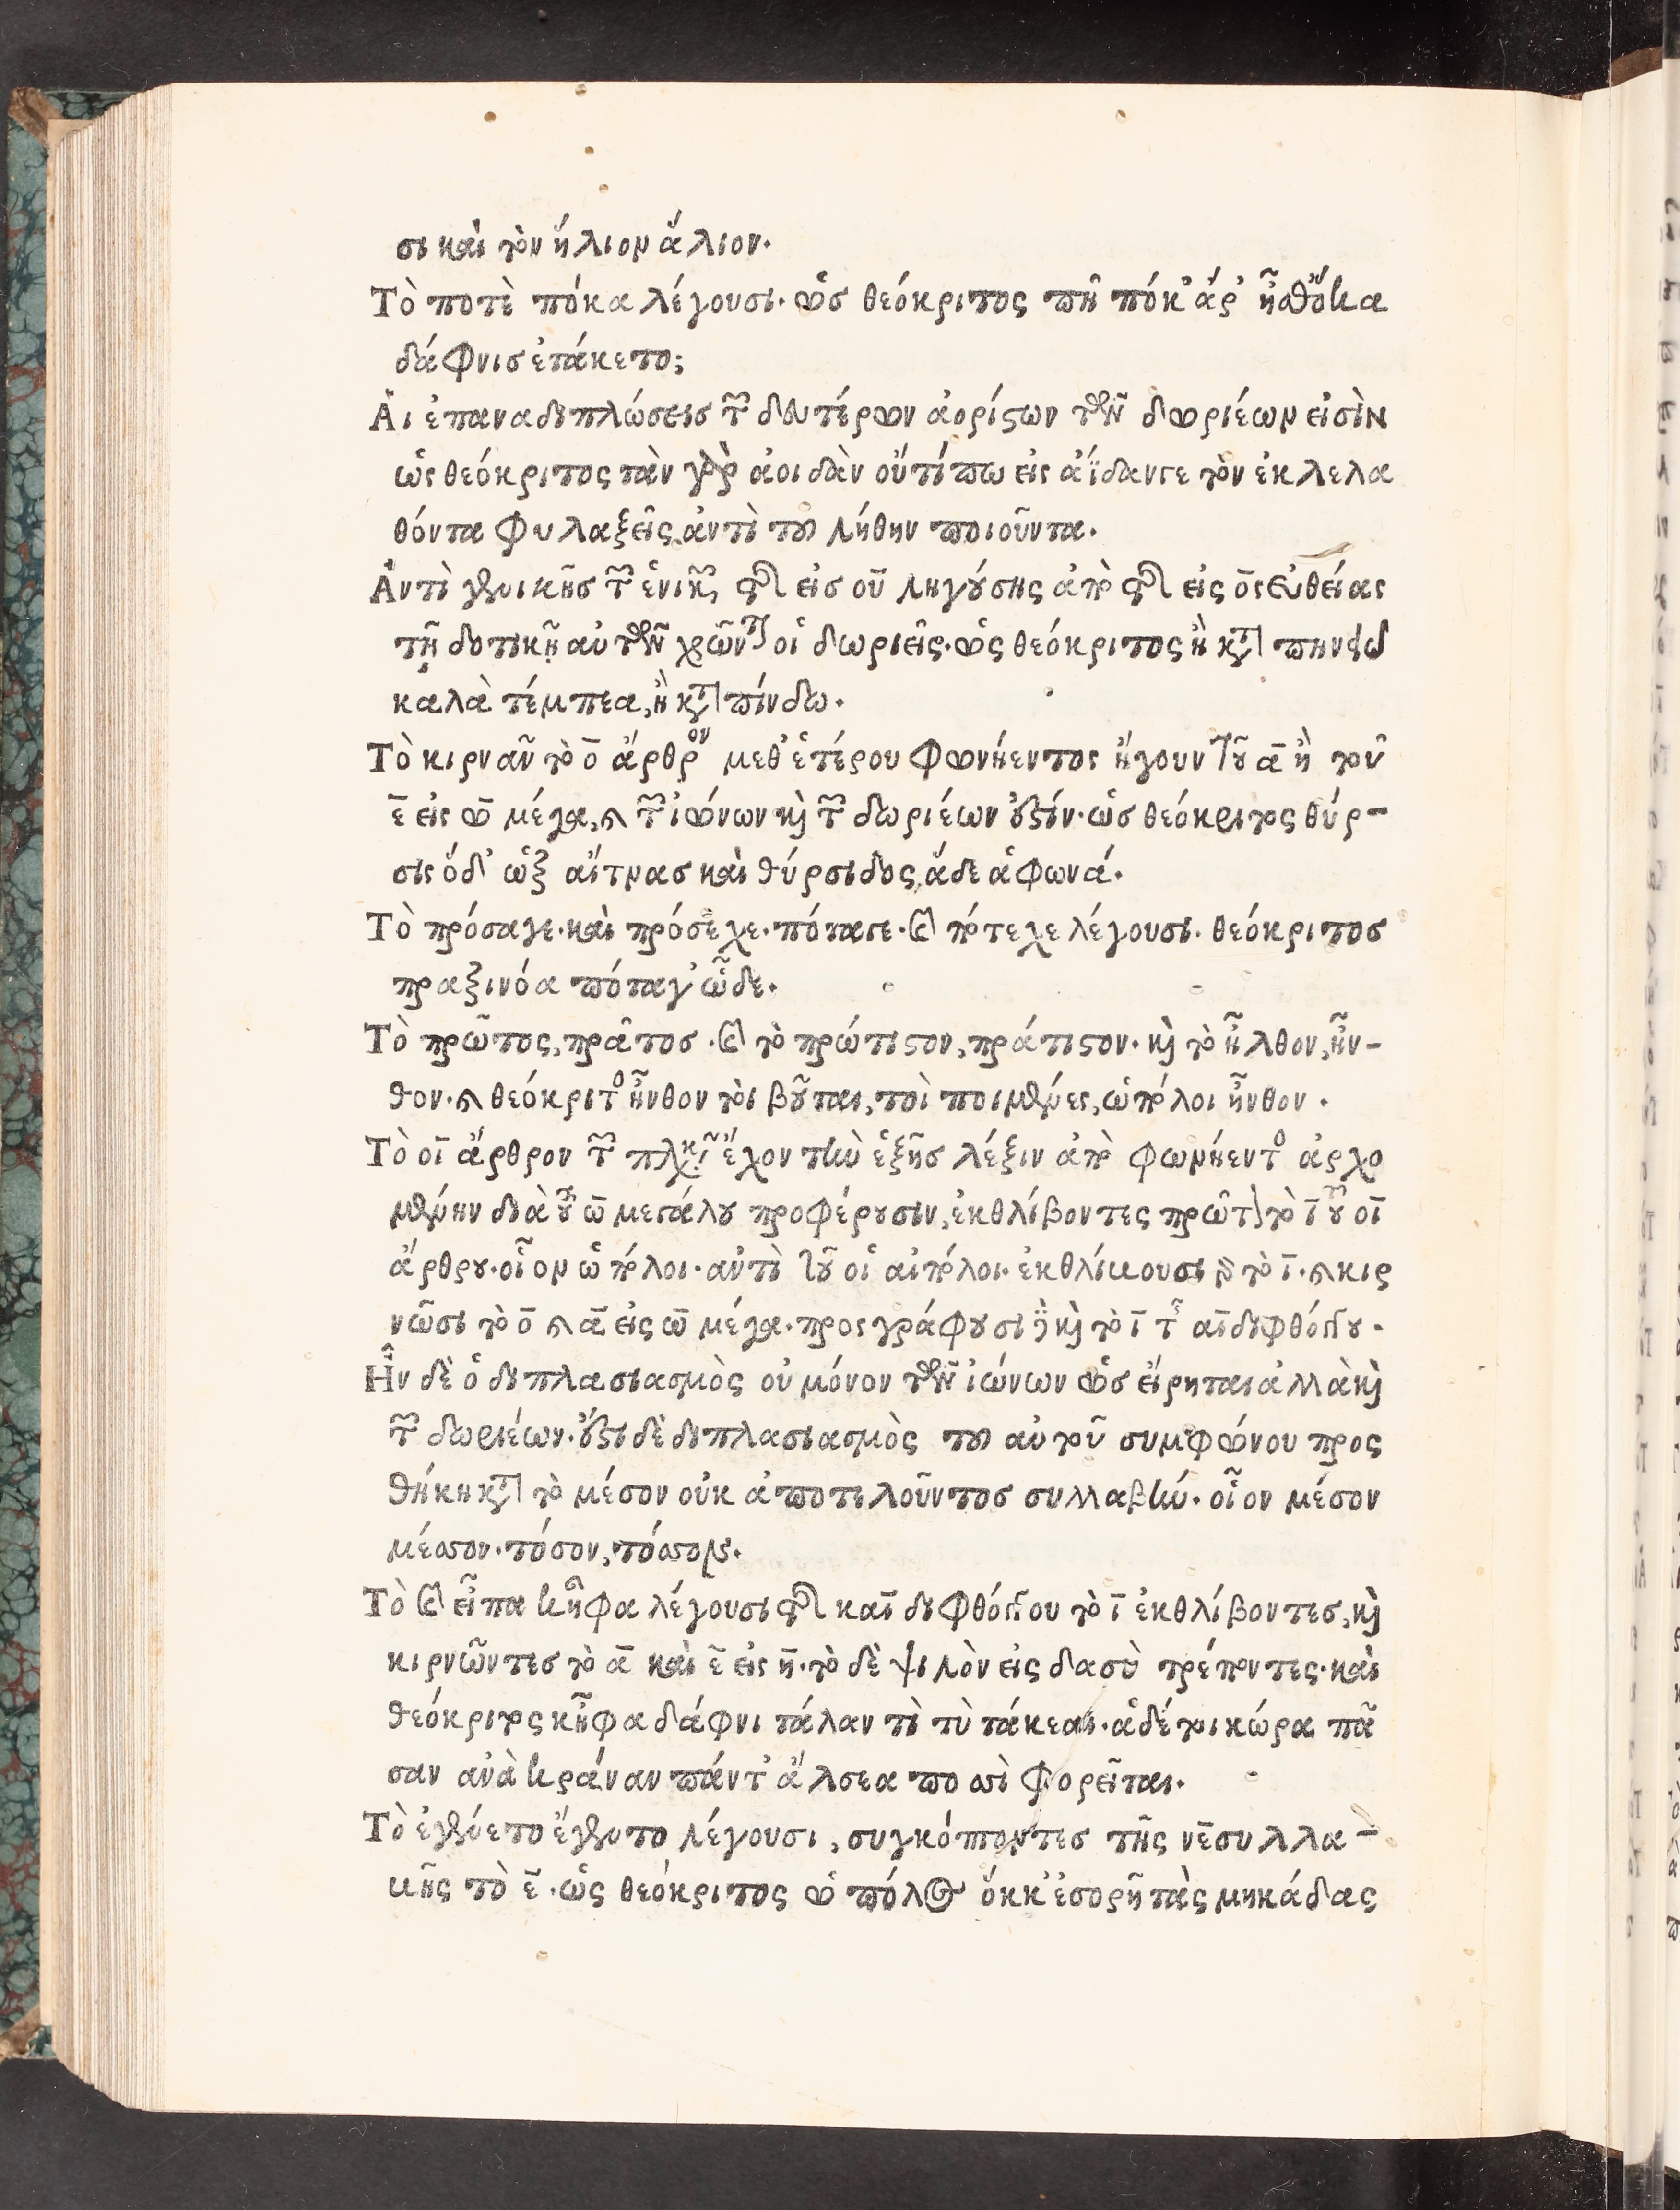 σι καὶ τὸν ἥλιον ἅλιον.
Τὸ ποτὲ πόκα λέγουσι. ὡς θεόκριτος πῆ πόκ' ἄρ' ἦσθ' ὅκα
δάφνις ἐτάκετο;
Αἱ ἐπαναδιπλώσεις τῶν δευτέρων ἀορίστων τῶν δωριέων εἰσὶν
ὡς θεόκριτος τὰν γὰρ ἀοιδὰν οὔτί πω εἰς ἀΐδαν γε τὸν ἐκλελα
θόντα φυλαξεῖς, ἀντὶ τοῦ λήθην ποιοῦντα.
Ἀντὶ γενικῆς τῶν ἑνικῶν, τῆς εἰς ου ληγούσης ἀπὸ τῆς εἰς ος εὐθείας
τῇ δοτικῇ αὐτῶν χρῶνται οἱ δωριεῖς. ὡς θεόκριτος ἢ κατὰ πηνειῶ
καλὰ τέμπεα, ἢ κατὰ πίνδω.
Τὸ κιρνᾶν τὸ ο ἄρθρον μεθ' ἑτέρου φωνήεντος ἤγουν τοῦ α ἢ τοῦ
ε εἰς ω μέγα, καὶ τῶν ἰώνων καὶ τῶν δωριέων ἐστίν. ὡς θεόκριτος θύρ-
σις ὅδ' ὡξ αἴτνας καὶ θύρσιδος, ἅδε ἁ φωνά.
Τὸ πρόσαγε. καὶ πρόσεχε. πόταγε. καὶ πότεχε λέγουσι. θεόκριτος
πραξινόα πόταγ' ὧδε.
Τὸ πρῶτος, πρᾶτος. καὶ τὸ πρώτιστον, πράτιστον. καὶ τὸ ἦλθον, ἦν-
θον. καὶ θεόκριτος ἦνθον τοὶ βοῦται, τοὶ ποιμένες, ὡπόλοι ἦνθον.
Τὸ οἱ ἄρθρον τῶν πληθυντικῶν ἔχον τὴν ἑξῆς λέξιν ἀπὸ φωνήεντος ἀρχο
μένην διὰ τοῦ ω μεγάλου προφέρουσιν, ἐκθλίβοντες πρῶτον τὸ ι τοῦ οι
ἄρθρου. οἷον ὡπόλοι. ἀντὶ τοῦ οἱ αἰπόλοι. ἐκθλίβουσι γὰρ τὸ ι. καὶ κιρ
νῶσι τὸ ο καὶ α εἰς ω μέγα. προσγράφουσι δὲ καὶ τὸ ι τῆς αι διφθόγγου.
Ἦν δὲ ὁ διπλασιασμὸς οὐ μόνον τῶν ἰώνων ὡς εἴρηται ἀλλὰ καὶ
τῶν δωριέων. ἔστι δὲ διπλασιασμὸς τοῦ αὐτοῦ συμφώνου προσ
θήκη κατὰ τὸ μέσον οὐκ ἀποτελοῦντος συλλαβήν. οἷον μέσον
μέσσον. τόσον, τόσσον.
Τὸ καὶ εἶπα κἦφα λέγουσι τῆς και διφθόγγου τὸ ι ἐκθλίβοντες, καὶ
κιρνῶντες τὸ α καὶ ε εἰς η. τὸ δὲ ψιλὸν εἰς δασὺ τρέποντες. καὶ
θεόκριτος κἦφα δάφνι τάλαν τὶ τὺ τάκεαι. ἁ δέ τοι κώρα πᾶ
σαν ἀνὰ κράναν πάντ' ἄλσεα ποσσὶ φορεῖται.
Τὸ ἐγένετο ἔγεντο λέγουσι, συγκόπτοντες τῆς νε συλλα-
βῆς τὸ ε. ὡς θεόκριτος ὡπόλος ὅκκ' ἐσορῆ τὰς μηκάδας